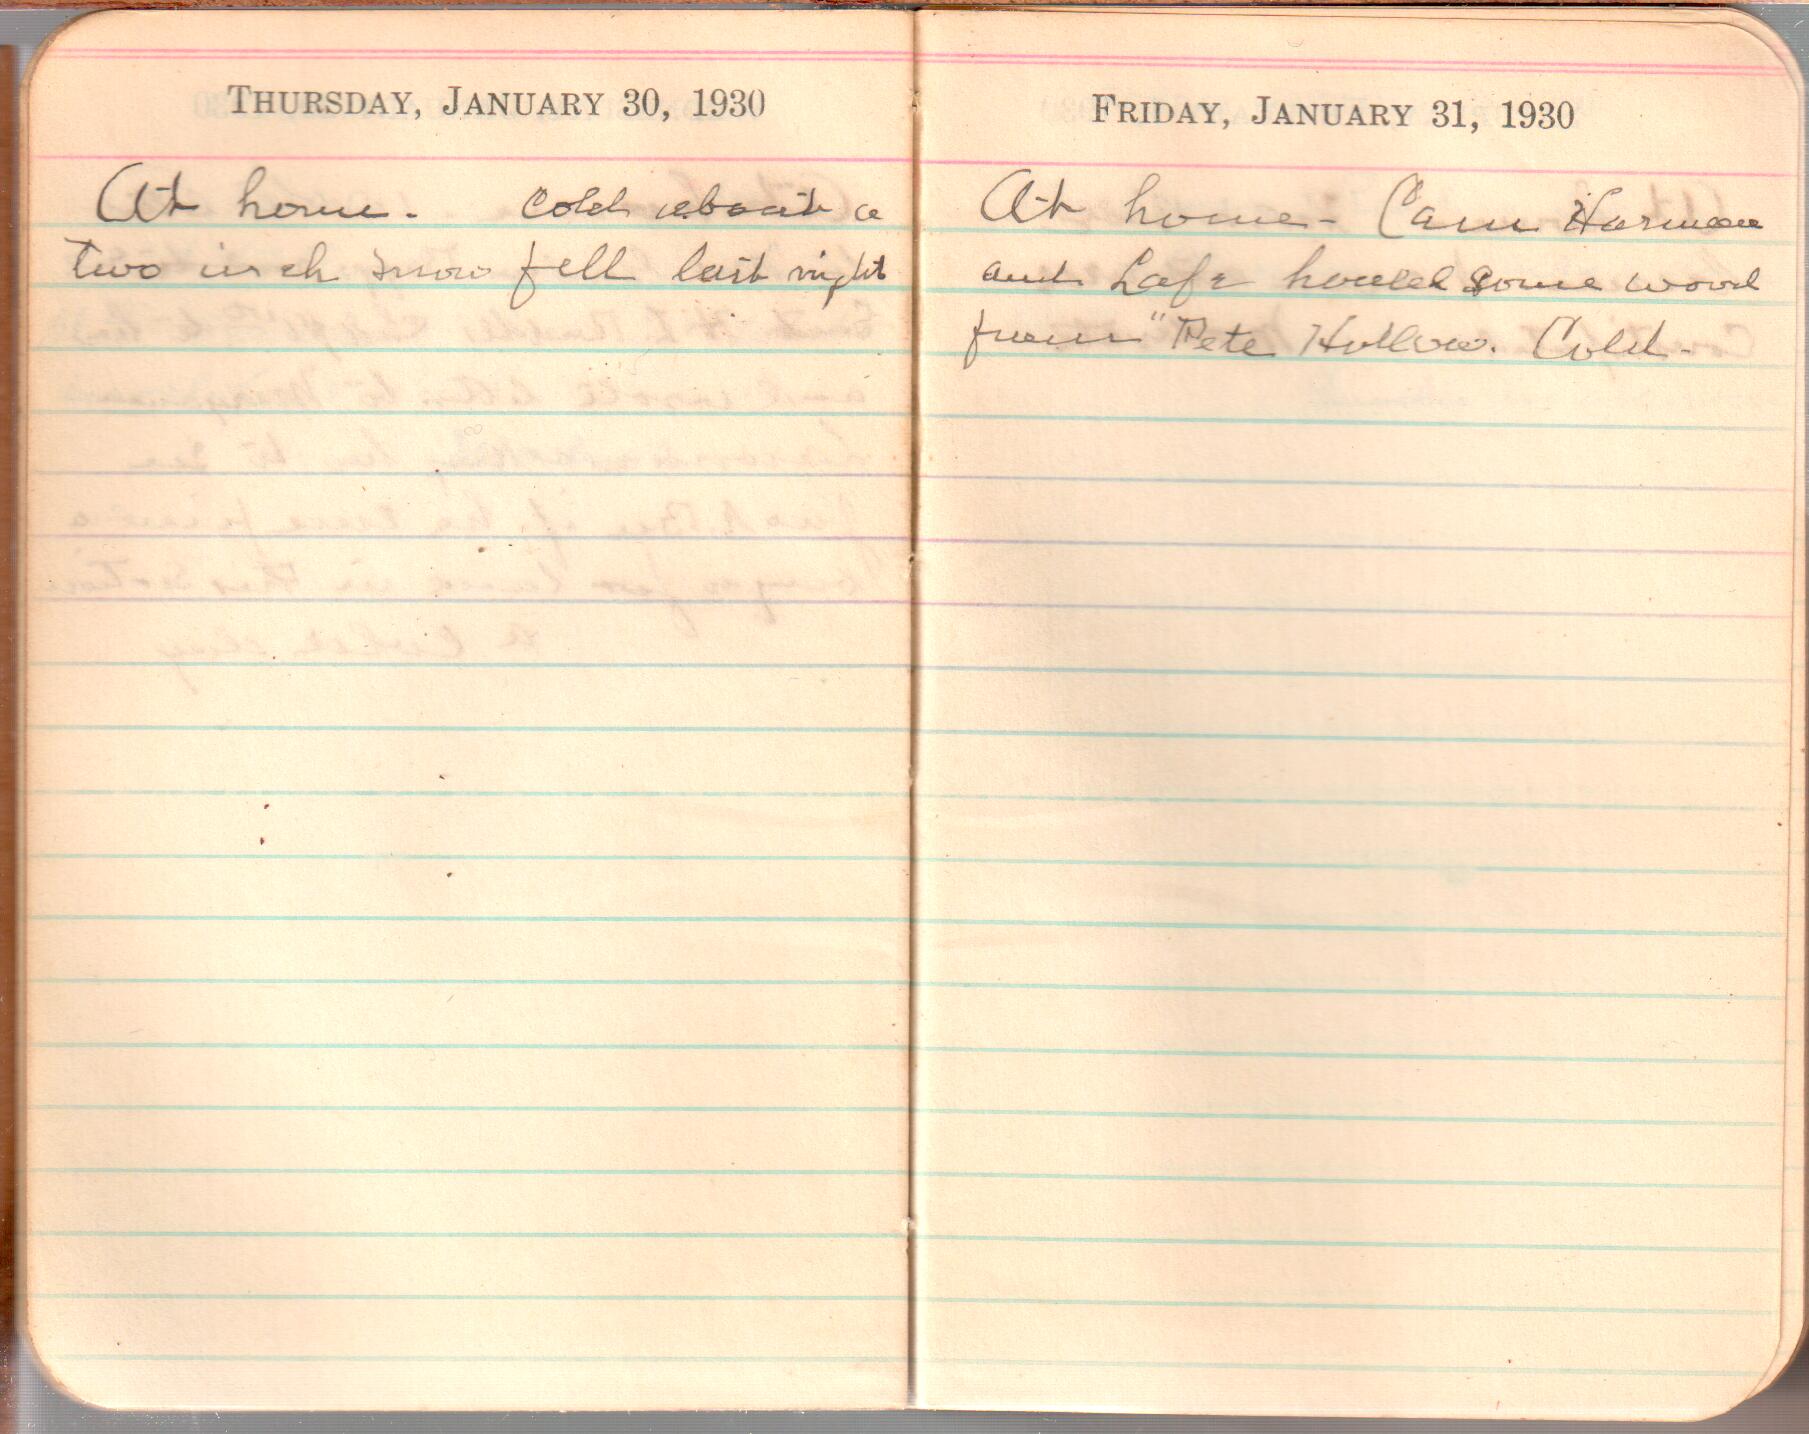 THURSDAY, JANUARY 30, 1930
At home. Cold about a
two inch snow fell last night
FRIDAY, JANUARY 31, 1930
At home - Cam Harman
and Lafe hauled some wood
from "Pete Hollow. Cold -